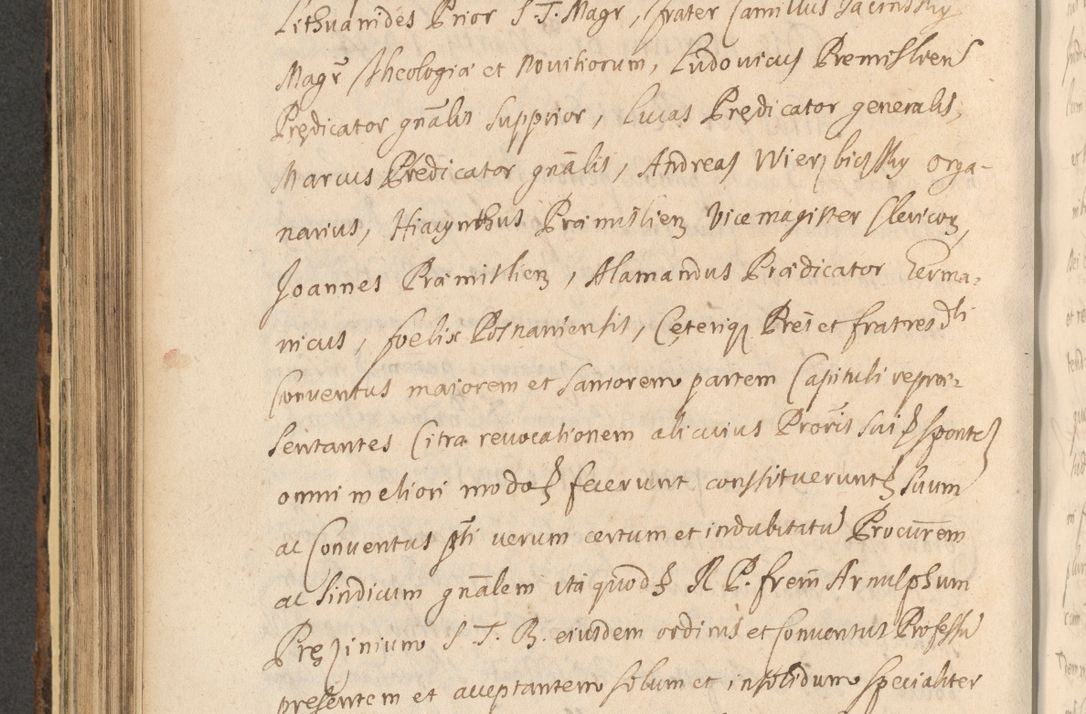 Lithuanides Prior S. T. Magr, frater Camillus Jacinsky
Magr̃ Theologiæ et Novitiorum, Ludovicus Premisliens
Prędicator gñalis Supprior, Lucas Prędicator generalis,
Marcus Prędicator gnãlis, Andreas Wierzbicsky orga-
narius, Hiacynthus Præmislien vicemagister Clericoꝝ,
Joannes Præmislien, Alamandus Prædicator Germa-
nicus, Foelix Posnaniensis, Ceteriqꝫ Pres et fratres dti
Conventus maiorem et saniorem partem Capituli repræ-
sentantes Citra revocationem alicuius Proris sui sponte
omni meliori modo fecerunt constituerunt suum
ac Conventus sti verum certum et indubitatũ Procurem
ac Sindicum gnãlem ita quod R P. frem Arnulphum
Pręzinium S. T. B. eiusdem ordinis et Conventus Professũ
presentem et acceptantem solum et in solidum specialiter